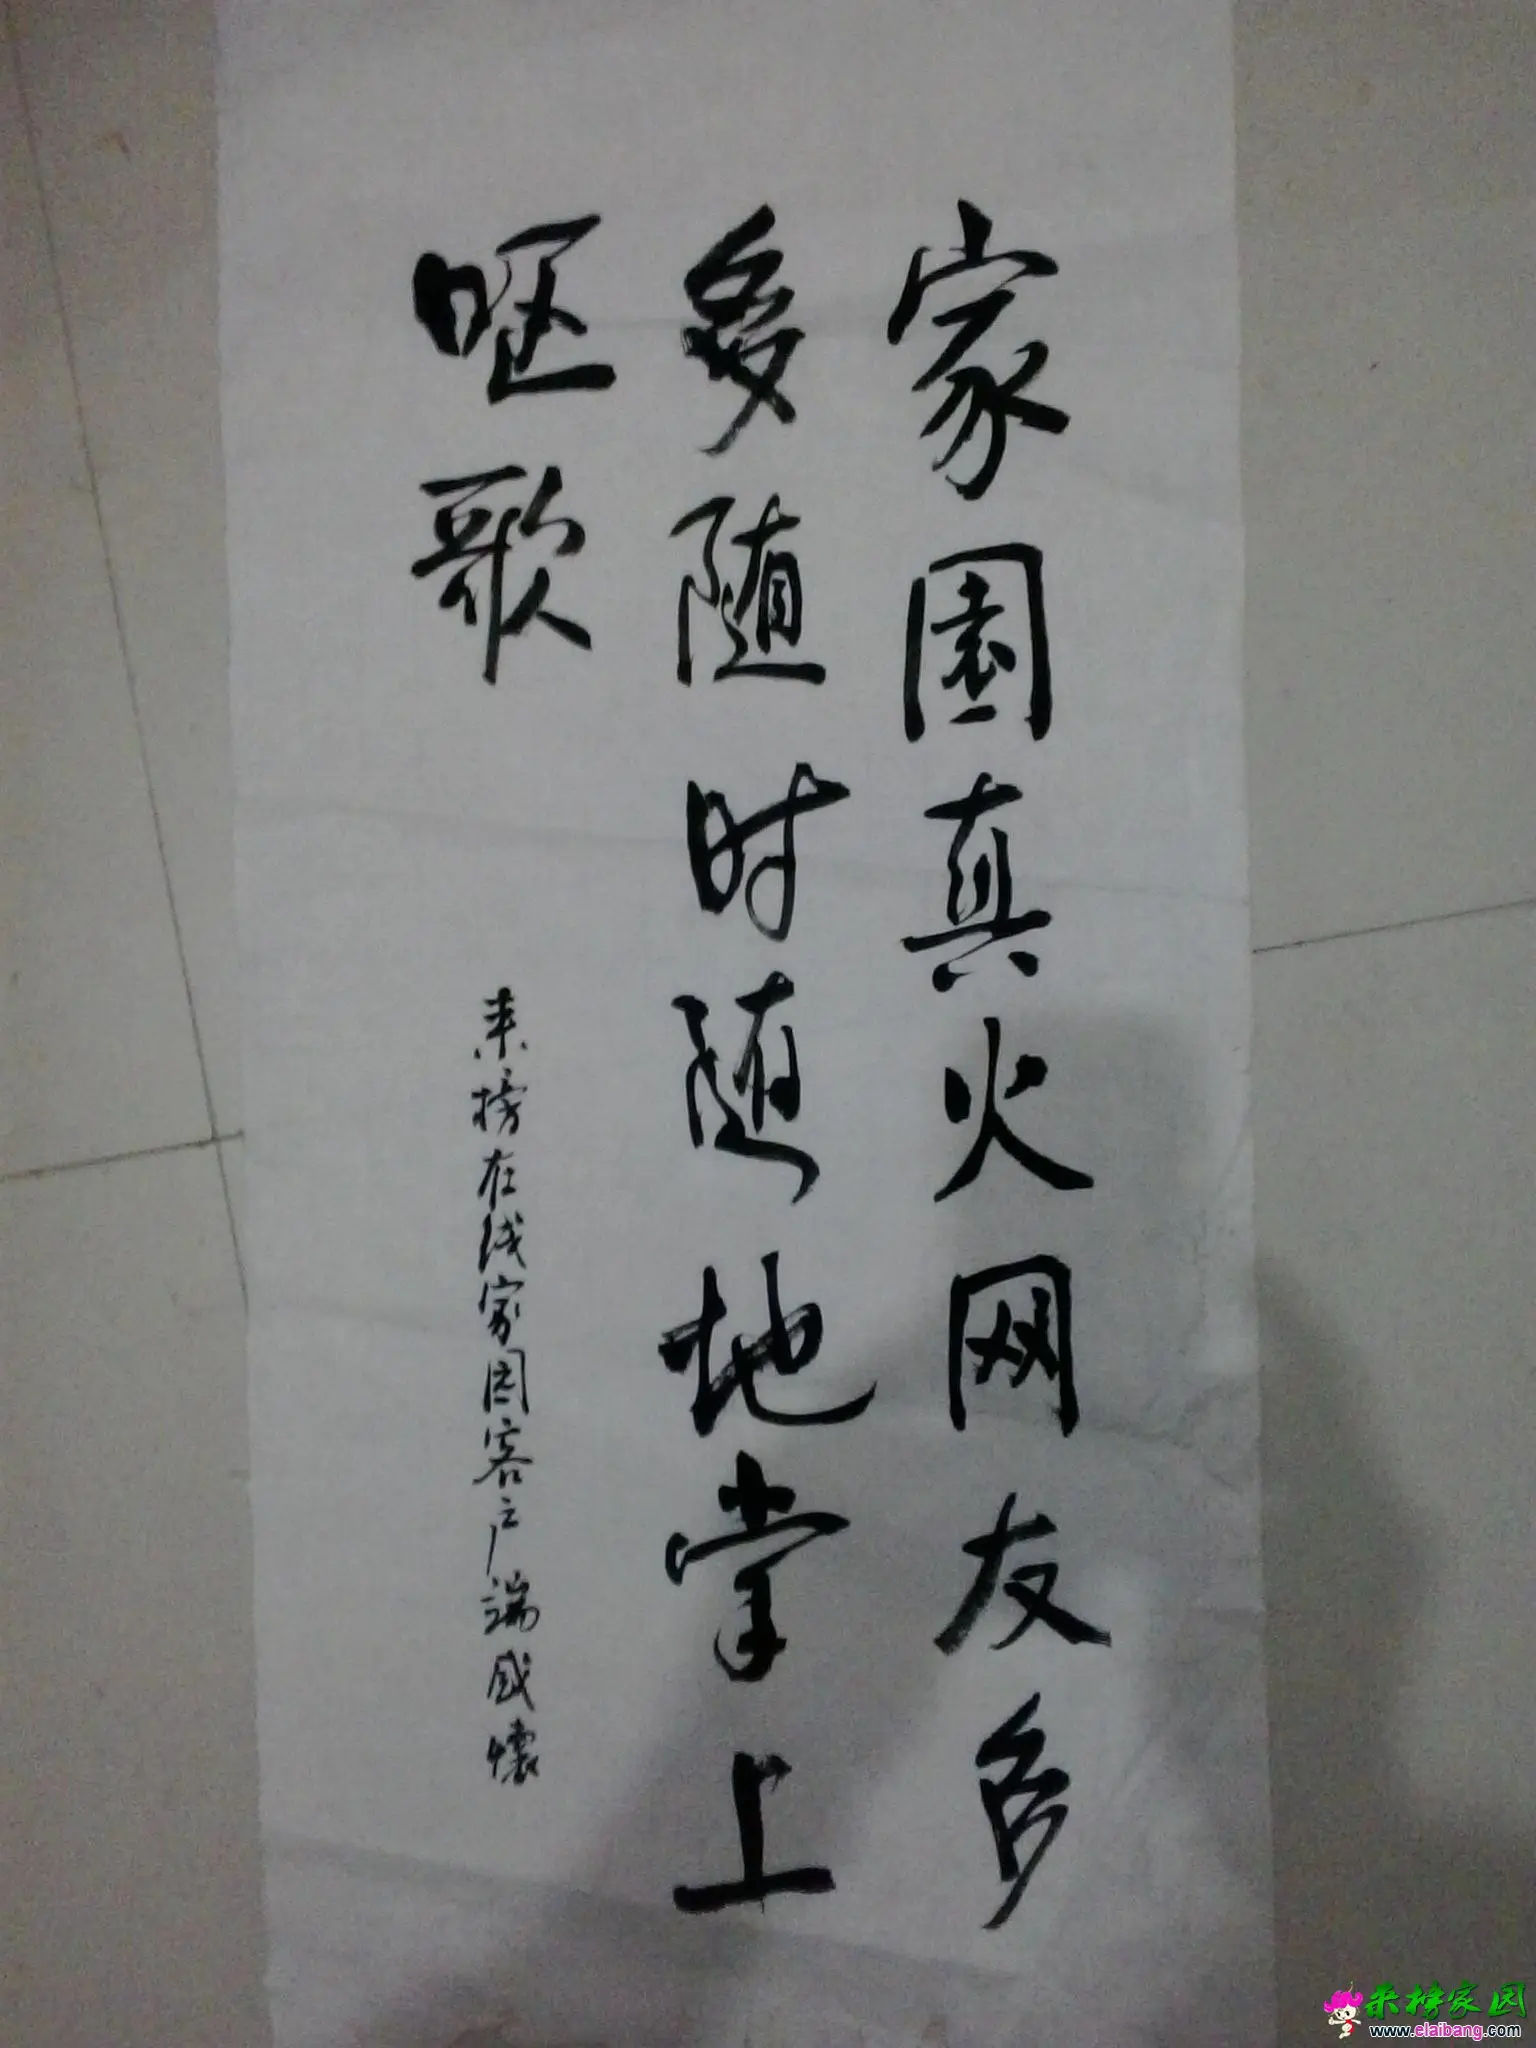 家園真火网友多
多随时随地掌上
呕歌
来榜在线家园客户端感懷
来榜家园
www.elaibang.com